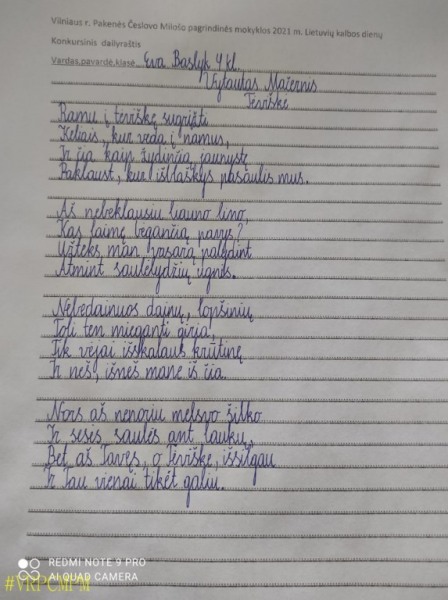 Vilniaus r. Pakenės Česlovo Milošo pagrindinės mokyklos 2021 m. Lietuvių kalbos dienų
Konkursinis dailyraštis
Vardas,pavardė,klasė Eva Baslyk 4 kl.
Vytautas Mačernis
Tėviškė
Ramu į tėviškę sugrįžti
Keliais, kur veda į namus,
Ir čia kaip žydinčią jaunystę
Paklaust, kur išblaškys pasaulis mus.
Aš nebeklausiu liauno lino,
Kas laimę bėgančią pavys?
Užteks man vasarą palydint
Atmint saulėlydžių ugnis.
Nebedainuos dainų, lopšinių
Toli ten mieganti giria,
Tik vėjai išskalaus krūtinę
Ir neš, išneš mane iš čia.
Nors aš nenoriu melsvo šilko
Ir sesės saulės ant laukų,
Bet aš Tavęs, o Tėviške, išsilgau
Ir Tau vienai tikėt galiu.
REDMI NOTE 9 PRO
AI QUAD CAMERA
#VRPCMPM